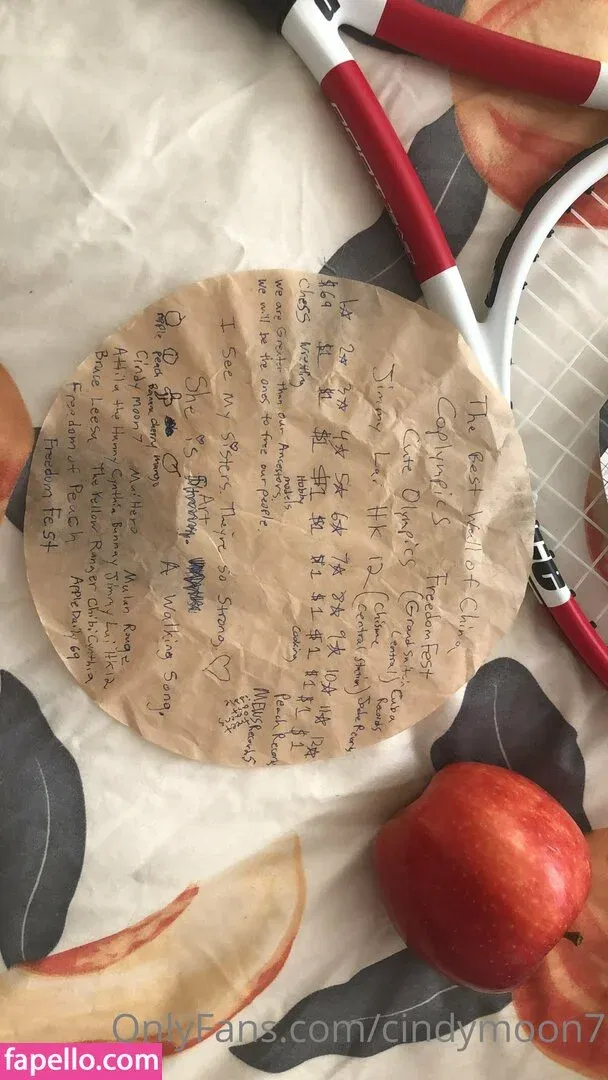 The Best Wall of China
Coplympics FreedomFest
Cute Olympics (Grand Snitch
Central) Cuba
Jimmy Lai HK 12 (Chisme Records
Central Station) Indie Records
1☆ 2☆ 3☆ 4☆ 5☆ 6☆ 7☆ 8☆ 9☆ 10☆ 11☆ 12☆
$69 $1 $1 $1 $1 $1 $1 $1 $1 $1 $1 $1
Chess Wrestling Hobby Cooking Peach Records
we are Greater than our Ancestors,
we will be the ones to free our people
MEWS Records
I See My Sisters, They're So Strong, ♡
She is Art
A Walking Song,
Apple Peach Banana Cherry Mango
Cindy Moon 7 Mulan Rouge
Attila the Hunny Cynthia Bunnay Jimmy Lai HK12
Bruce Leesa The Yellow Ranger Chibi Cynthia
Freedom of Peach Apple Daily 69
Freedom Fest
OnlyFans.com/cindymoon7
fapello.com